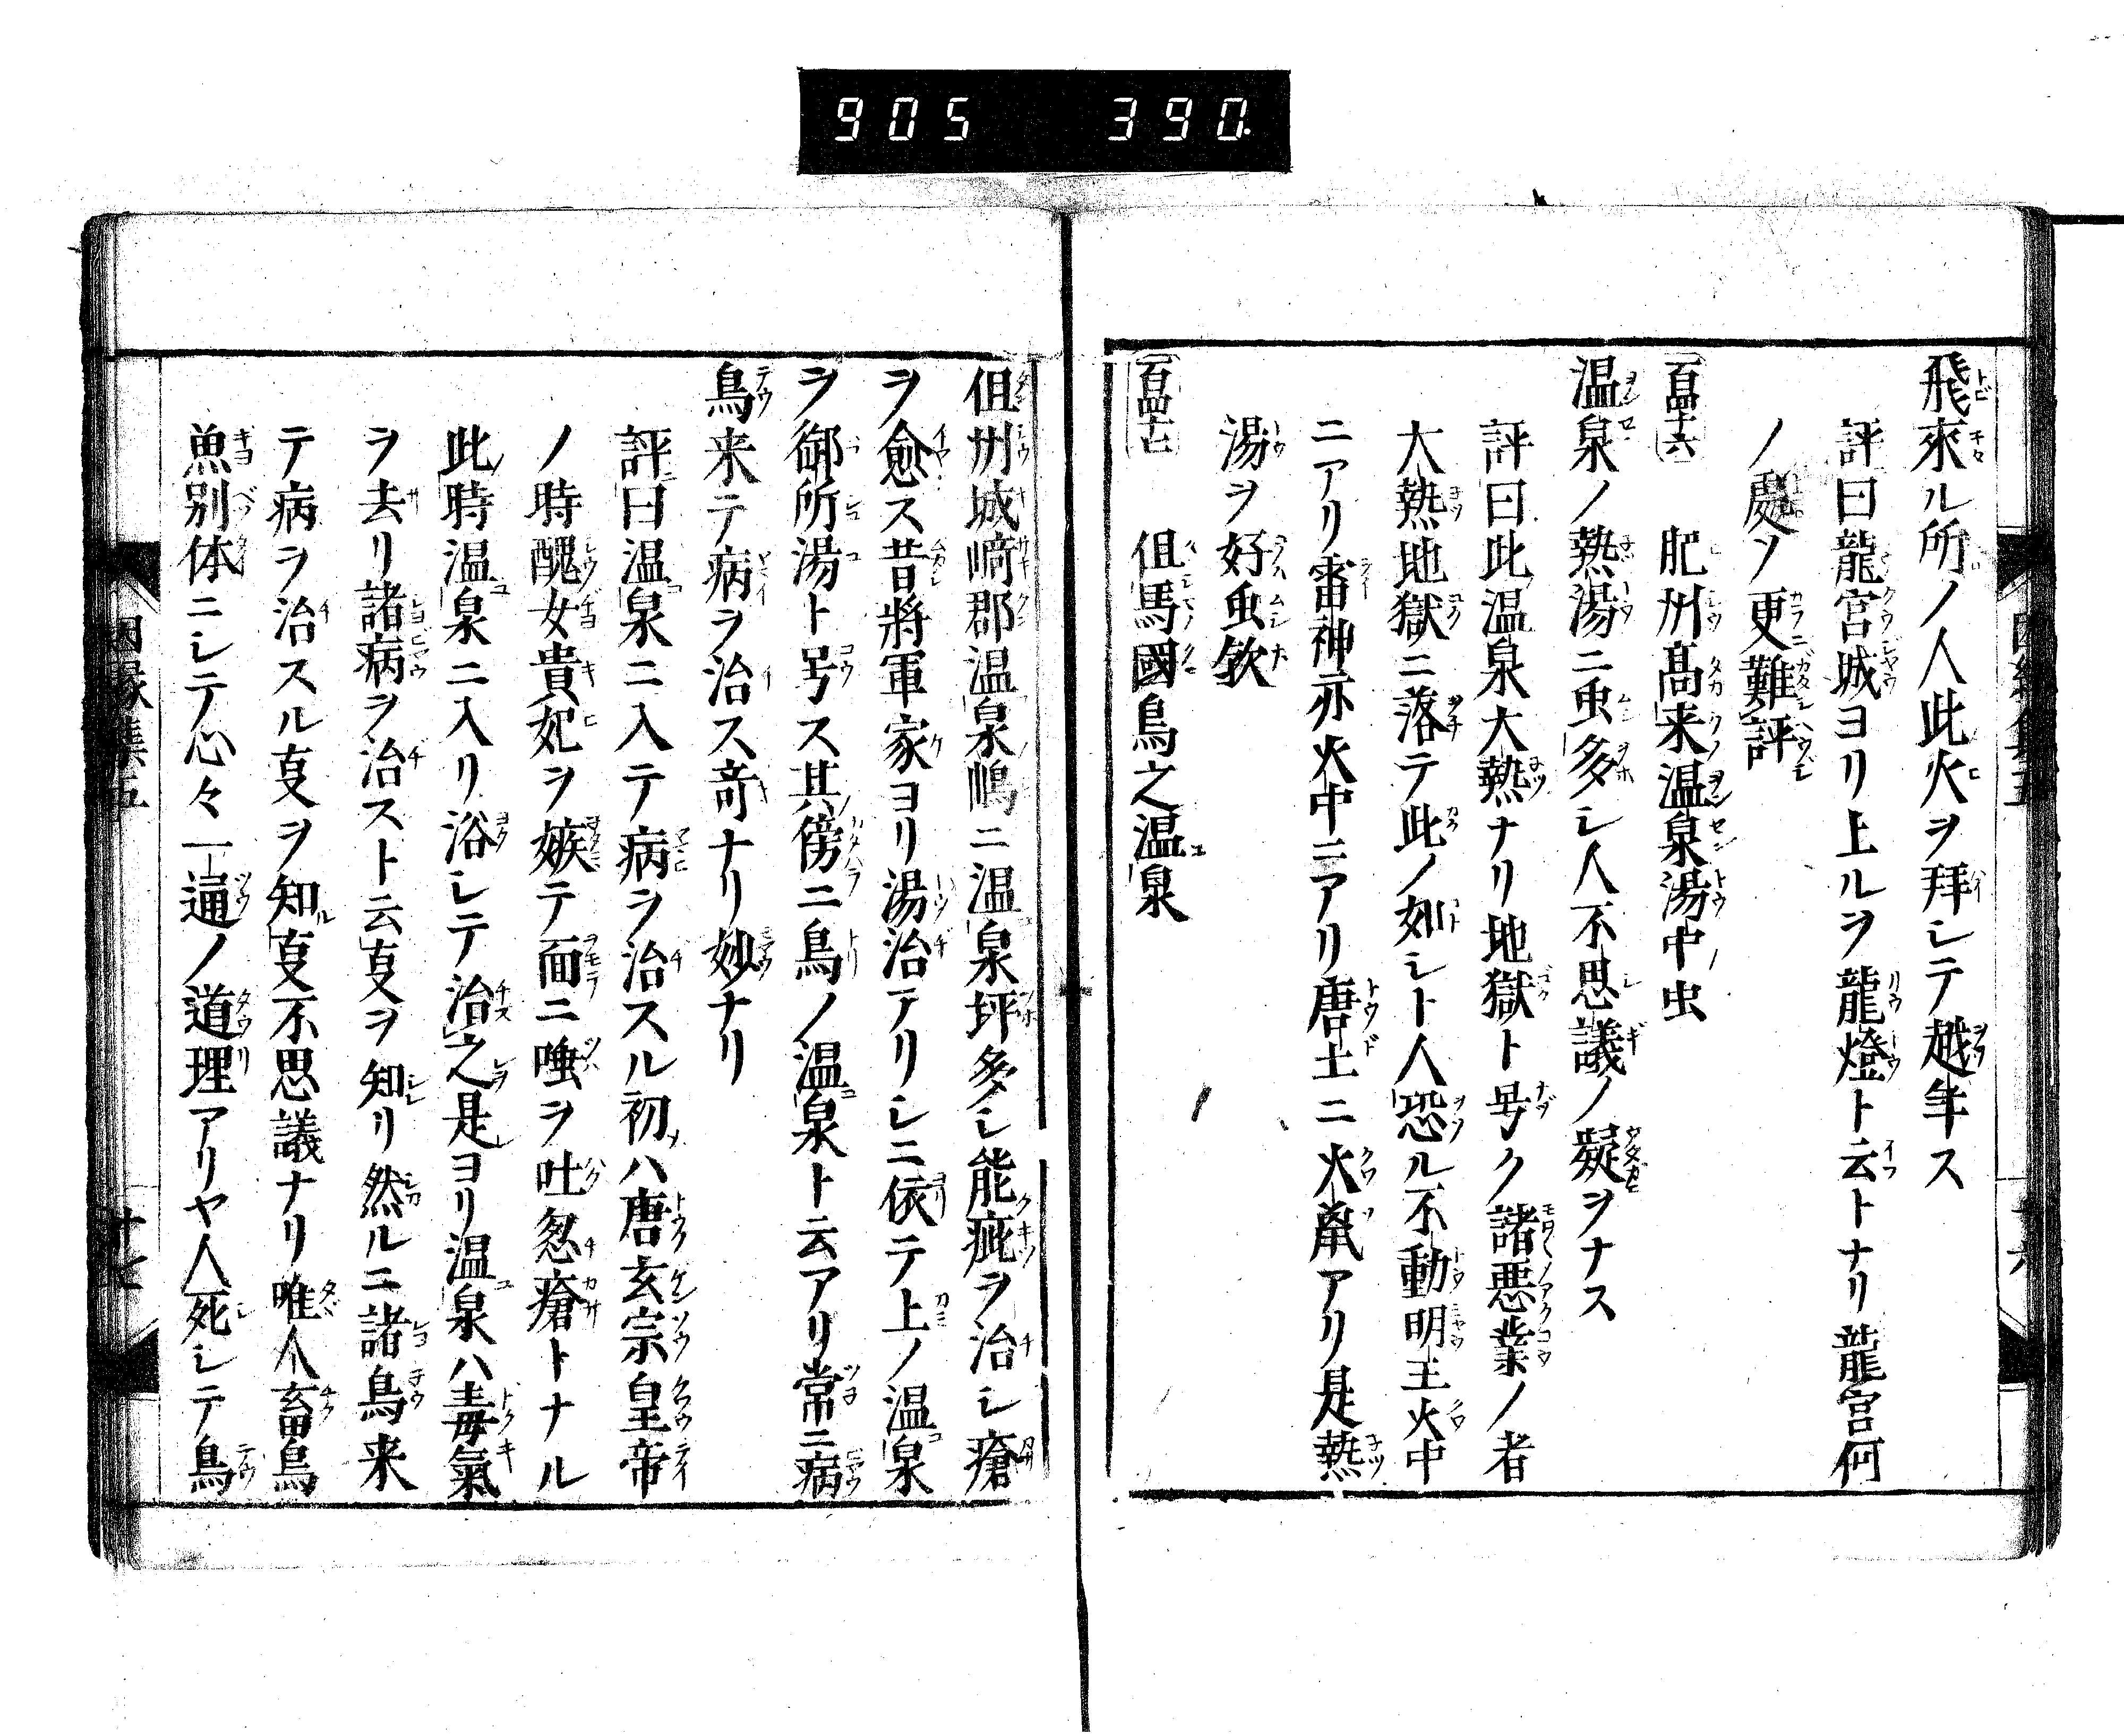 905 390
飛來ル所ノ人此火ヲ拜シテ越年ス
評曰龍宮城ヨリ上ルヲ龍燈ト云トナリ龍宮何
ノ處ソ更難評
百四十六 肥州髙来温泉湯中虫
温泉ノ熱湯ニ虫多シ人不思議ノ疑ヲナス
評曰此温泉大熱ナリ地獄ト号ク諸悪業ノ者
大熱地獄ニ落テ此ノ如シト人恐ル不動明王火中
ニアリ雷神亦火中ニアリ唐土ニ火鼠アリ是熱
湯ヲ好虫欤
百四十七 伹馬國鳥之温泉
伹州城﨑郡温泉嶋ニ温泉坪多シ能疵ヲ治シ瘡
ヲ愈ス昔將軍家ヨリ湯治アリシニ依テ上ノ温泉
ヲ御所湯ト号ス其傍ニ鳥ノ温泉ト云アリ常ニ病
鳥来テ病ヲ治ス竒ナリ妙ナリ
評曰温泉ニ入テ病ヲ治スル初ハ唐玄宗皇帝
ノ時醜女貴妃ヲ嫉テ面ニ唾ヲ吐忽瘡トナル
此時温泉ニ入リ浴シテ治之是ヨリ温泉ハ毒氣
ヲ去リ諸病ヲ治スト云叓ヲ知リ然ルニ諸鳥来
テ病ヲ治スル叓ヲ知叓不思議ナリ唯人畜鳥
魚別体ニシテ心々一通ノ道理アリヤ人死シテ鳥
因縁集五
十七